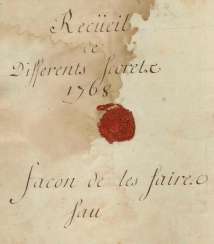 Recüeil
de
Differents secrets
1768
façon de les faire